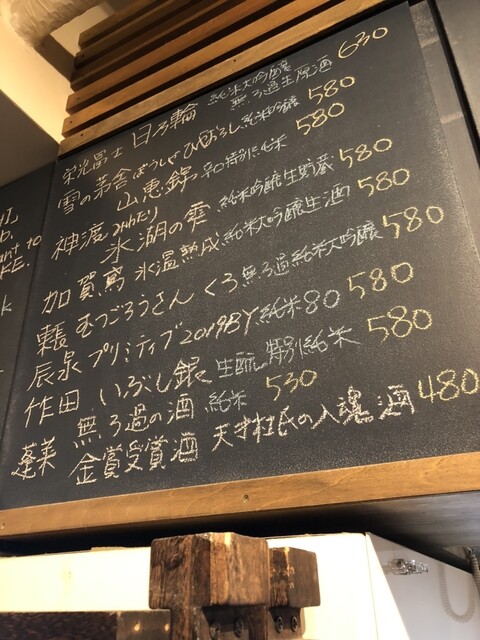 栄光冨士 日ろ輪 純米大吟醸 無ろ過生原酒 630
雪の茅舎 ぼうしゃ ひやおろし 純米吟醸 580
山恵錦 辛口特別純米 580
神渡 みわたり 氷湖の雫 純米吟醸生貯蔵 580
加賀鳶 氷温熟成 純米大吟醸生酒 580
むつごろうさん くろ 無ろ過純米大吟醸 580
辰泉 プリミティブ 2019BY 純米80 580
作田 いぶし銀 生酛 特別純米 580
無ろ過の酒 純米 530
蓬莱 金賞受賞酒 天才杜氏の入魂酒 480